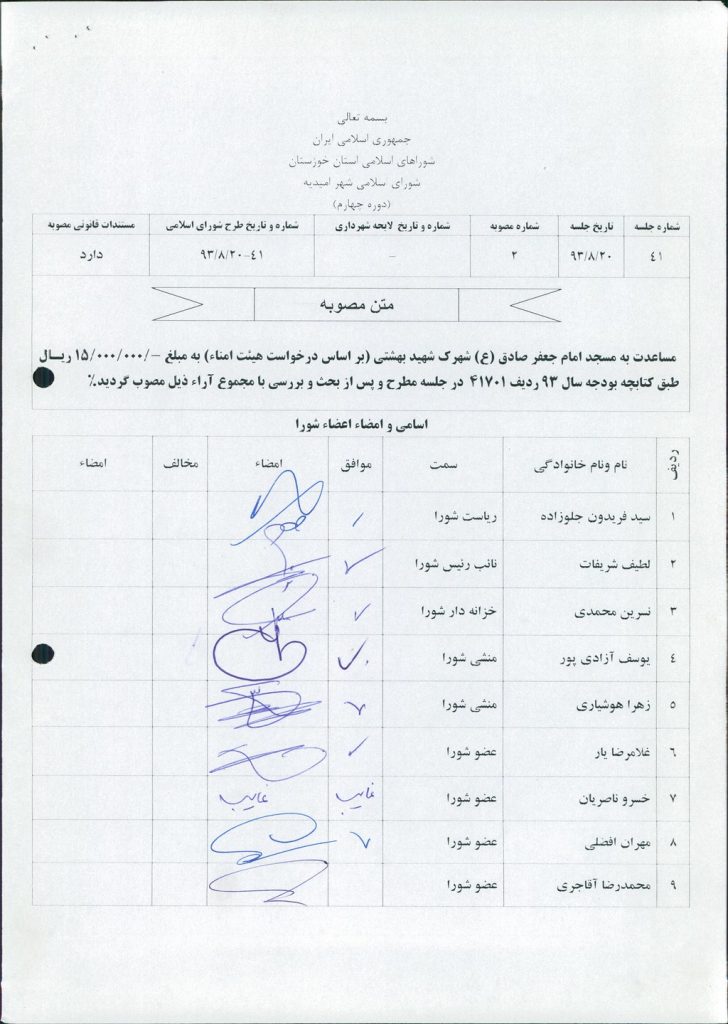 بسمه تعالی
جمهوری اسلامی ایران
شوراهای اسلامی استان خوزستان
شورای سلامی شهر امیدیه
(دوره چهارم)
شماره جلسه تاریخ جلسه شماره مصوبه شماره و تاریخ لایحه شهرداری شماره و تاریخ طرح شورای اسلامی مستندات قانونی مصوبه
٤١ ۹۳/۸/۲۰ ۲ - ٤١-۹۳/۸/۲۰ دارد
متن مصوبه
مساعدت به مسجد امام جعفر صادق (ع) شهرک شهید بهشتی (بر اساس درخواست هیئت امناء) به مبلغ -/۱۵/۰۰۰/۰۰۰ ریـال
طبق کتابچه بودجه سال ۹۳ ردیف ۴۱۷۰۱ در جلسه مطرح و پس از بحث و بررسی با مجموع آراء ذیل مصوب گردید٪
اسامی و امضاء اعضاء شورا
ردیف نام ونام خانوادگی سمت موافق امضاء مخالف امضاء
۱ سید فریدون جلوزاده ریاست شورا
۲ لطیف شریفات نائب رئیس شورا
۳ نسرین محمدی خزانه دار شورا
٤ یوسف آزادی پور منشی شورا
۵ زهرا هوشیاری منشی شورا
٦ غلامرضا یار عضو شورا
۷ خسرو ناصریان عضو شورا غایب غایب
۸ مهران افضلی عضو شورا
۹ محمدرضا آقاجری عضو شورا